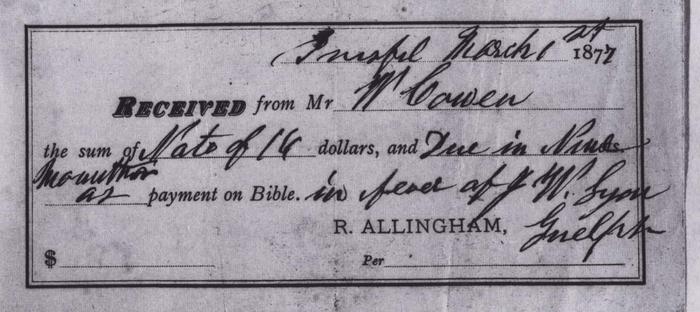 Innisfil March 1st 1877
RECEIVED from Mr W Cowen
the sum of Note of 16 dollars, and Due in Nine
Mounths
as payment on Bible. in of J W. Lyon
R. ALLINGHAM, Guelph
$ Per